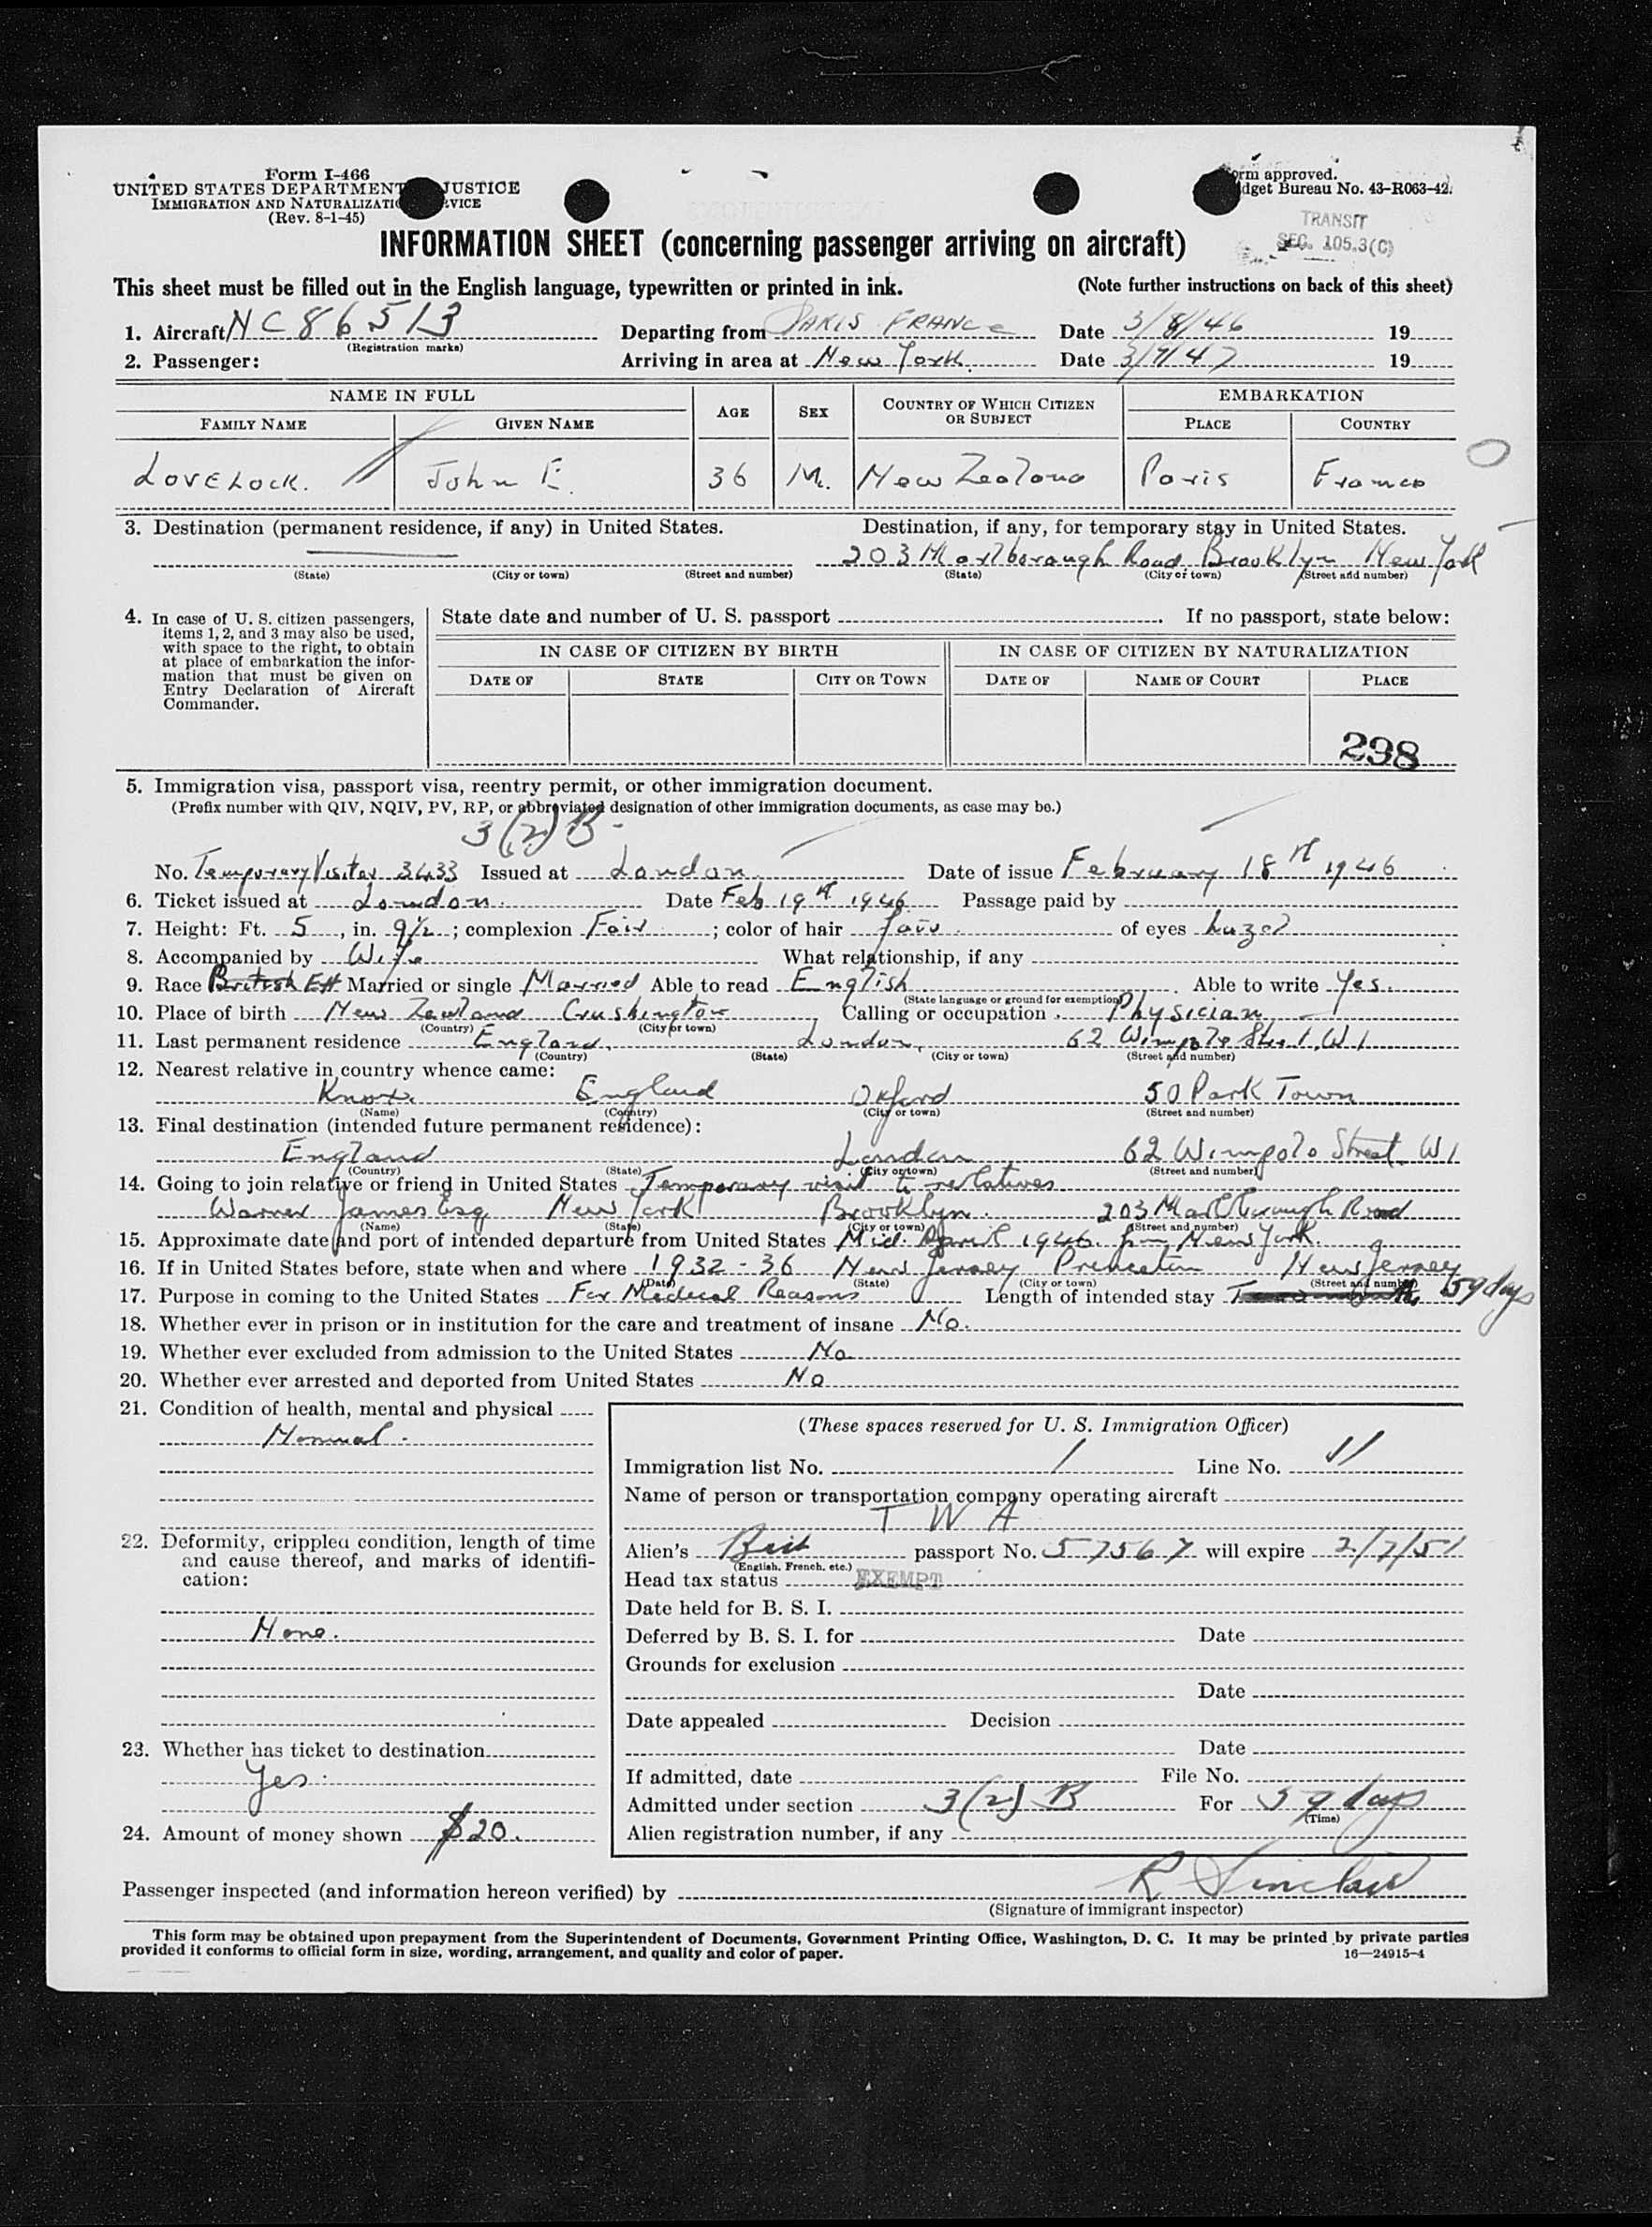 Form I-466
UNITED STATES DEPARTMENT JUSTICE
IMMIGRATION AND NATURALIZATIO VICE
(Rev. 8-1-45)
orm approved.
dget Bureau No. 43-R063-42.
TRANSIT
SEC. 105.3(C)
INFORMATION SHEET (concerning passenger arriving on aircraft)
This sheet must be filled out in the English language, typewritten or printed in ink. (Note further instructions on back of this sheet)
1. Aircraft NC86513 Departing from PARIS FRANCE Date 3/8/46 19
(Registration marks)
2. Passenger: Arriving in area at New York Date 3/9/47 19
NAME IN FULL AGE SEX COUNTRY OF WHICH CITIZEN OR SUBJECT EMBARKATION
FAMILY NAME GIVEN NAME PLACE COUNTRY
LOVELOCK. John E. 36 M. New Zealand Paris France
3. Destination (permanent residence, if any) in United States. Destination, if any, for temporary stay in United States.
203 Marlborough Road Brooklyn New York
(State) (City or town) (Street and number) (State) (City or town) (Street and number)
4. In case of U. S. citizen passengers, items 1, 2, and 3 may also be used, with space to the right, to obtain at place of embarkation the information that must be given on Entry Declaration of Aircraft Commander.
State date and number of U. S. passport . If no passport, state below:
IN CASE OF CITIZEN BY BIRTH IN CASE OF CITIZEN BY NATURALIZATION
DATE OF STATE CITY OR TOWN DATE OF NAME OF COURT PLACE
298
5. Immigration visa, passport visa, reentry permit, or other immigration document.
(Prefix number with QIV, NQIV, PV, RP, or abbreviated designation of other immigration documents, as case may be.)
3(2)B
No. Temporary Visitor 3433 Issued at London. Date of issue February 18th 1946
6. Ticket issued at London. Date Feb 19th 1946 Passage paid by
7. Height: Ft. 5, in. 9½; complexion Fair; color of hair fair. of eyes hazel
8. Accompanied by Wife What relationship, if any
9. Race British Married or single Married Able to read English. Able to write Yes.
(State language or ground for exemption)
10. Place of birth New Zealand Crushington Calling or occupation Physician
(Country) (City or town)
11. Last permanent residence England, London, 62 Wimpole Street, W1
(Country) (State) (City or town) (Street and number)
12. Nearest relative in country whence came:
Knox. England Oxford 50 Park Town
(Name) (Country) (City or town) (Street and number)
13. Final destination (intended future permanent residence):
England London 62 Wimpole Street W1
(Country) (State) (City or town) (Street and number)
14. Going to join relative or friend in United States Temporary visit to relatives
Warner James Esq New York Brooklyn. 203 Marlborough Road
(Name) (State) (City or town) (Street and number)
15. Approximate date and port of intended departure from United States Mid. April 1946. from New York.
16. If in United States before, state when and where 1932-36 New Jersey Princeton New Jersey
(Date) (State) (City or town) (Street and number)
17. Purpose in coming to the United States For Medical Reasons Length of intended stay 59 days
18. Whether ever in prison or in institution for the care and treatment of insane No.
19. Whether ever excluded from admission to the United States No
20. Whether ever arrested and deported from United States No
21. Condition of health, mental and physical
Normal.
22. Deformity, crippled condition, length of time and cause thereof, and marks of identification:
None.
23. Whether has ticket to destination
Yes.
24. Amount of money shown $20.
(These spaces reserved for U. S. Immigration Officer)
Immigration list No. 1 Line No. 11
Name of person or transportation company operating aircraft
TWA
Alien's Brit passport No. 57567 will expire 2/7/51
(English, French, etc.)
Head tax status EXEMPT
Date held for B. S. I.
Deferred by B. S. I. for Date
Grounds for exclusion
Date
Date appealed Decision
Date
If admitted, date File No.
Admitted under section 3(2)B For 59 days
(Time)
Alien registration number, if any
Passenger inspected (and information hereon verified) by R Sinclair
(Signature of immigrant inspector)
This form may be obtained upon prepayment from the Superintendent of Documents, Government Printing Office, Washington, D. C. It may be printed by private parties
provided it conforms to official form in size, wording, arrangement, and quality and color of paper. 16—24915-4